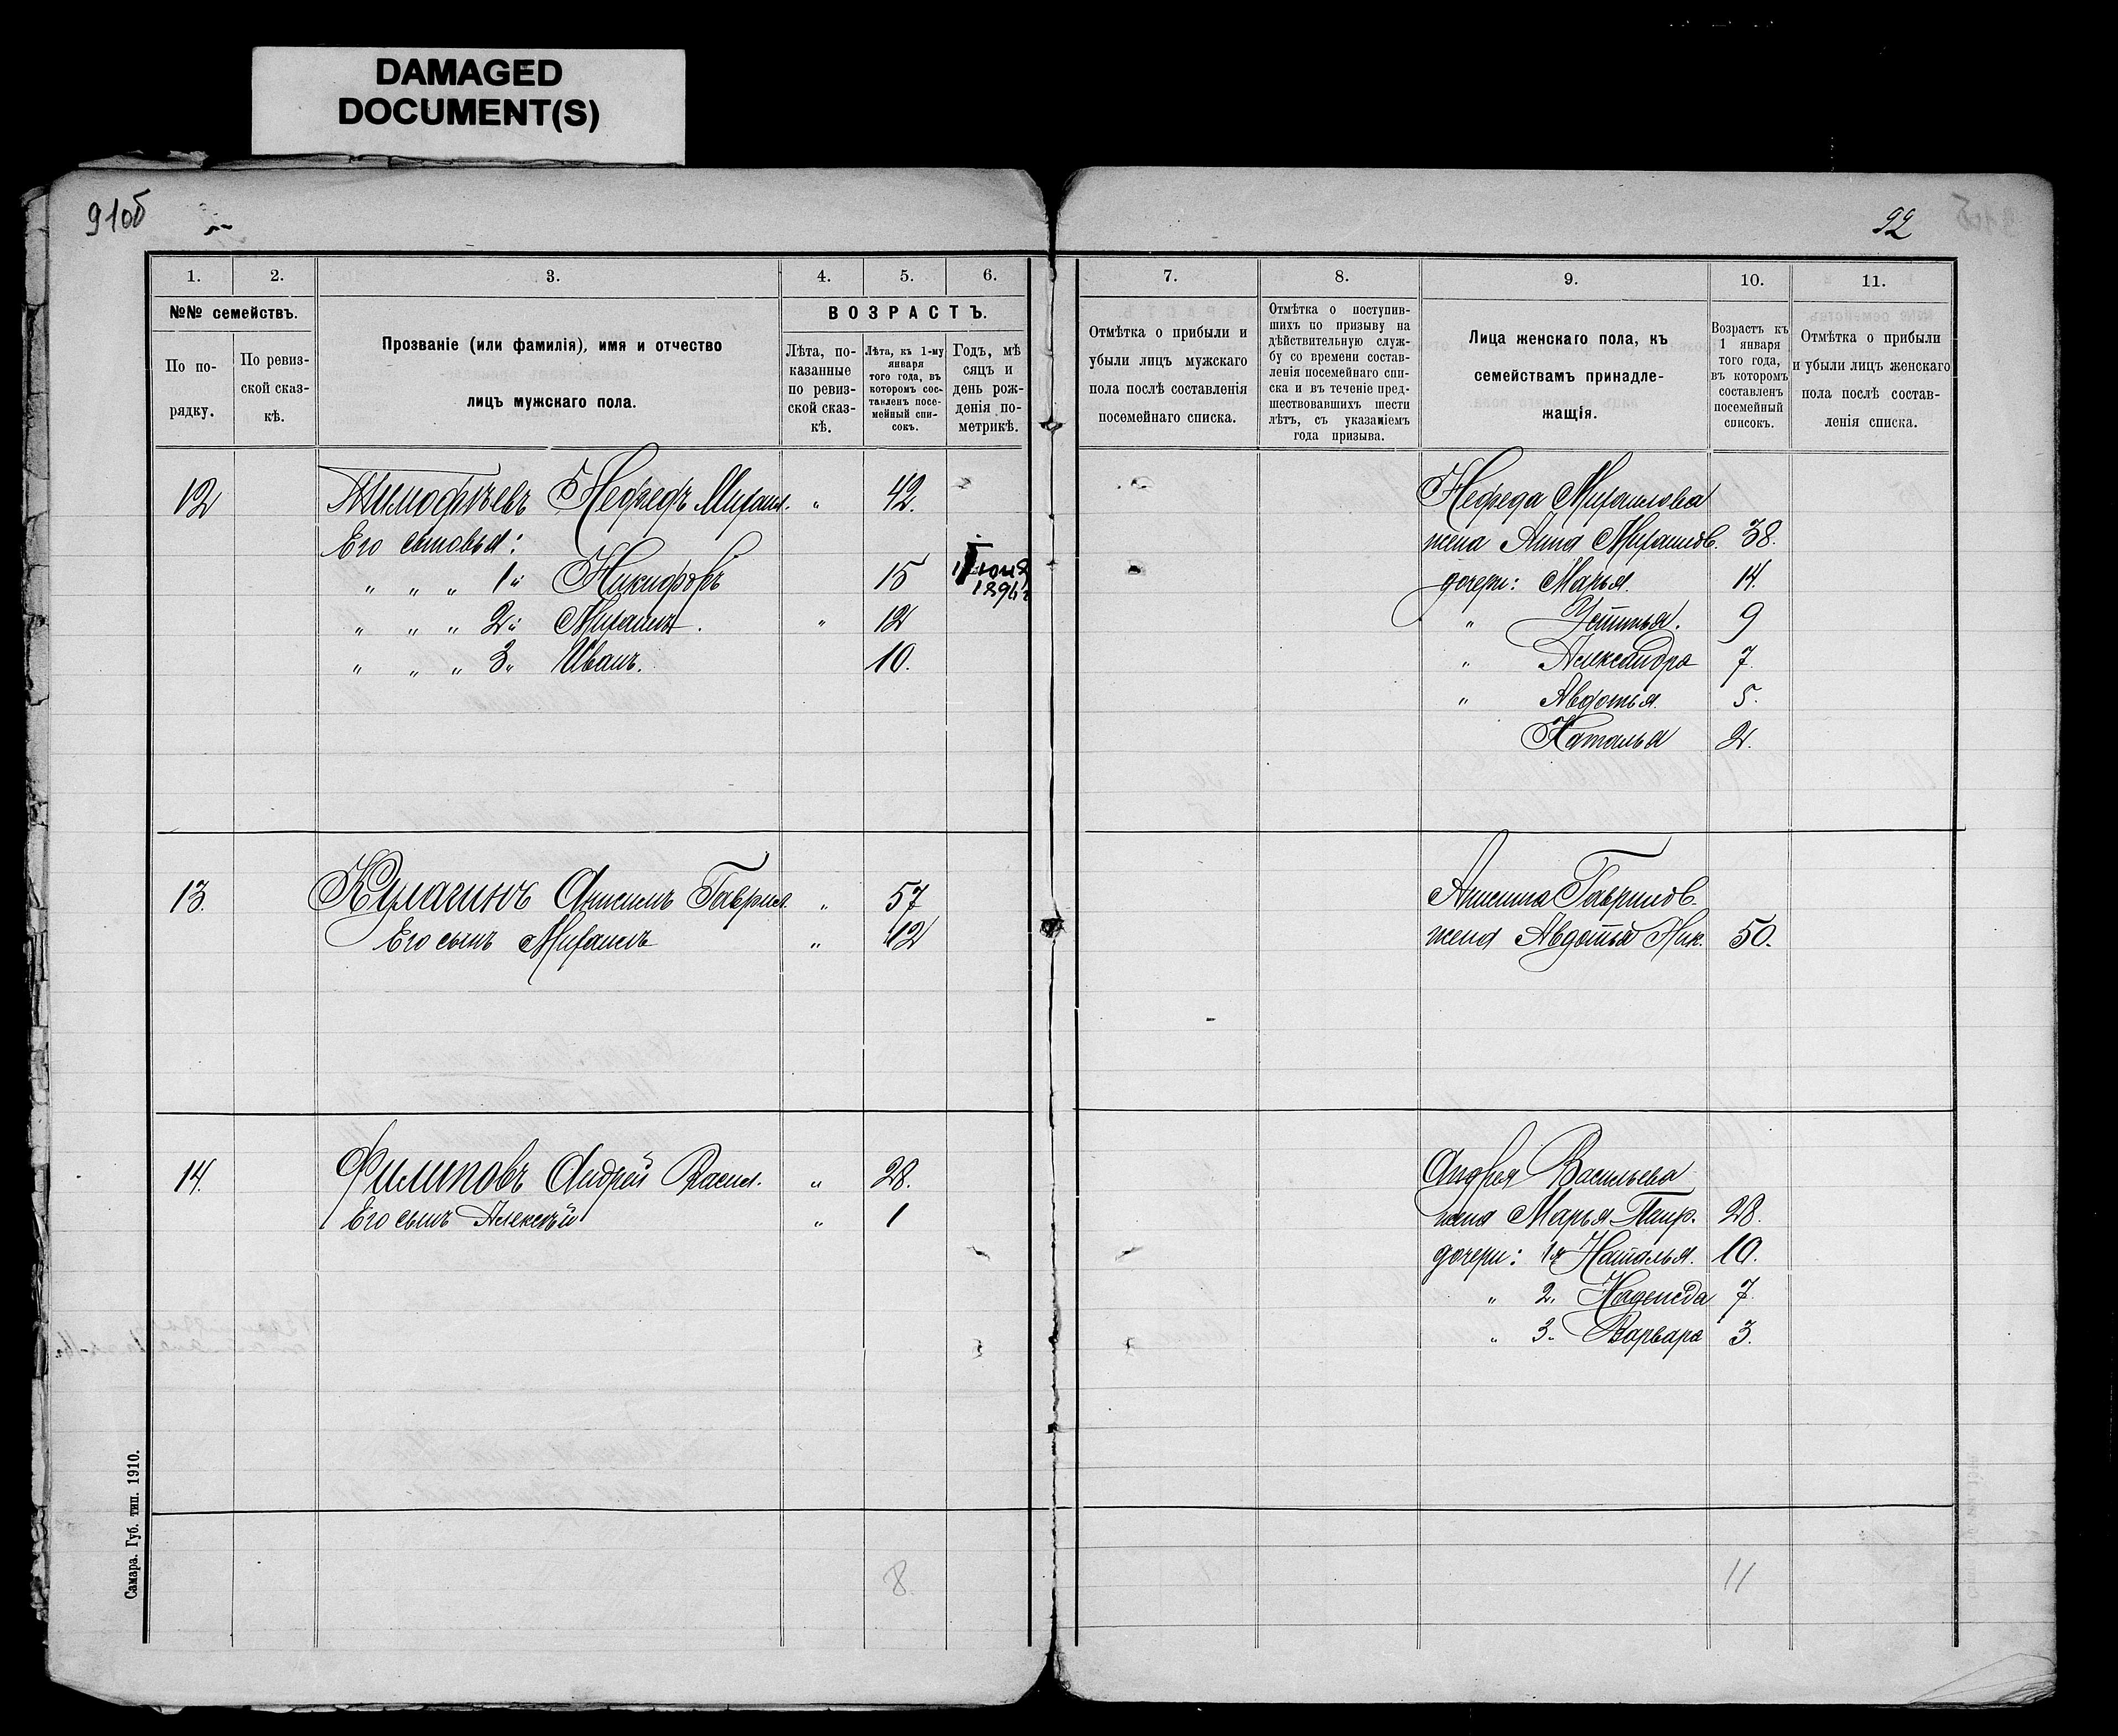 DAMAGED
DOCUMENT(S)
91об
92
1.
2.
3.
4.
5.
6.
№№ семействъ.
По по-
рядку.
По ревиз-
ской сказ-
кѣ.
Прозваніе (или фамилія), имя и отчество
лицъ мужскаго пола.
ВОЗРАСТЪ.
Лѣта, по-
казанные
по ревиз-
ской сказ-
кѣ.
Лѣта, къ 1-му
января
того года, въ
которомъ сос-
тавленъ посе-
мейный спи-
сокъ.
Годъ, мѣ
сяцъ и
день рож-
денія по-
метрикѣ.
7.
8.
9.
10.
11.
Отмѣтка о прибыли и
убыли лицъ мужскаго
пола послѣ составленія
посемейнаго списка.
Отмѣтка о поступив-
шихъ по призыву на
дѣйствительную служ-
бу со времени состав-
ленія посемейнаго спи-
ска и въ теченіе пред-
шествовавшихъ шести
лѣтъ, съ указаніемъ
года призыва.
Лица женскаго пола, къ
семействамъ принадле-
жащія.
Возрастъ къ
1 января
того года,
въ которомъ
составленъ
посемейный
списокъ.
Отмѣтка о прибыли
и убыли лицъ женскаго
пола послѣ состав-
ленія списка.
12 Тимофѣевъ Нефедъ Михаил. " 42.
Его сыновья:
" " " 1й Никифоръ 15
" " " 2й Михаилъ. " 12
" " " 3й Иванъ. 10.
Нефеда Михаилова
жена Анна Михайлов. 38.
дочери: Марья. 14.
" Устинья. 9
" Александра 7.
" Авдотья. 5.
Наталья 2.
13. Кулагинъ Анисимъ Гаврил. " 57
Его сынъ Михаилъ " 12
Анисима Гаврилов.
жена Авдотья Ник. 50.
14. Филиповъ Андрей Васил. " 28.
Его сынъ Алексѣй " 1
Андрея Васильева
жена Марья Петр. 28.
дочери: 1я Наталья. 10.
" 2. Надежда 7.
" 3. Варвара 3.
8.
11
Самара. Губ. тип. 1910.